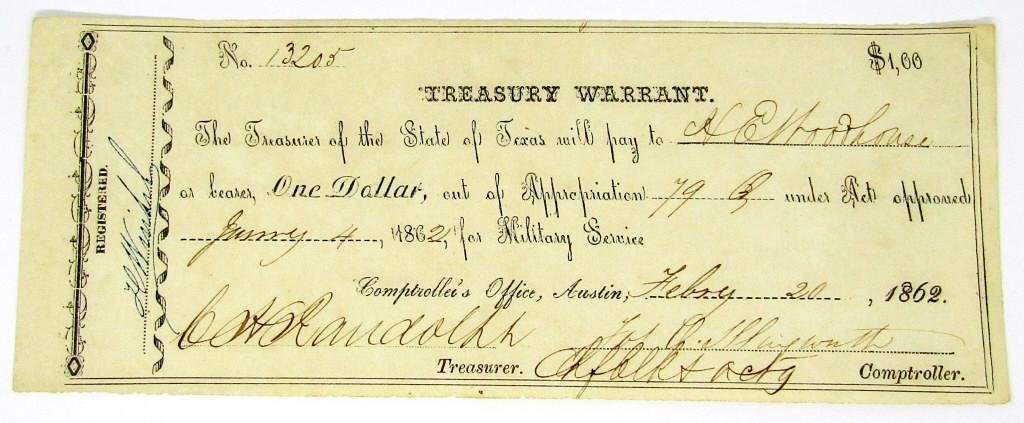 No. 13205
$1,00
TREASURY WARRANT.
The Treasurer of the State of Texas will pay to H E Woodhouse
or bearer, One Dollar, out of Appropriation 79 under Act approved
4, 1862, for Military Service
Comptroller's Office, Austin, Feby 20, 1862.
C H Randolph
Treasurer.
Comptroller.
REGISTERED.